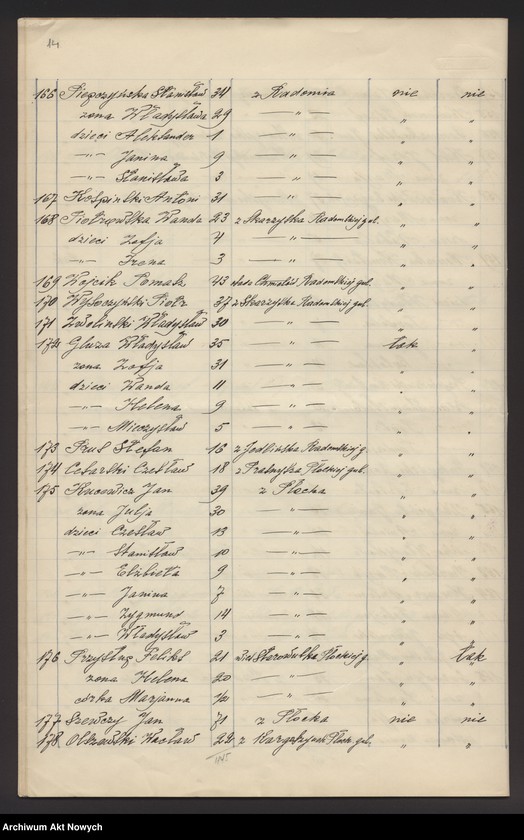 166 Stanisław 34 z Radomia nie nie
żona Władysława 29 — " — " "
dzieci Aleksander 1 — " — " "
— " — Janina 9 — " — " "
— " — Stanisława 3 — " — " "
167 Antoni 31 — " — " "
168 Wanda 23 z Skarżyska Radomskiej gub. " "
dzieci Zofja 4 — " — " "
— " — Irena 3 — " — " "
169 Wojcik Tomasz 43 Radomskiej gub. " "
170 Piotr 37 z Skarżyska Radomskiej gub. " "
171 Zwoliński Władysław 30 — " — " "
172 Gluza Władysław 35 — " — tak "
żona Zofja 31 — " — " "
dzieci Wanda 11 — " — " "
— " — Helena 9 — " — " "
— " — Mieczysław 5 — " — " "
173 Prus Stefan 16 z Jedlińska Radomskiej g. " "
174 Czesław 18 z Prasnysza Płockiej gub. " "
175 Jan 39 z Płocka " "
żona Julja 30 — " — " "
dzieci Czesław 13 — " — " "
— " — Stanisław 10 — " — " "
— " — Elżbieta 9 — " — " "
— " — Janina 7 — " — " "
— " — Zygmund 14 — " — " "
— " — Władysław 3 — " — " "
176 Feliks 21 Płockiej g. " tak
żona Helena 20 — " — " "
córka Marjanna — " — " "
177 Szewczy Jan 71 z Płocka nie nie
178 Olszewski Wacław 22 z Płock. gub. " "
Archiwum Akt Nowych